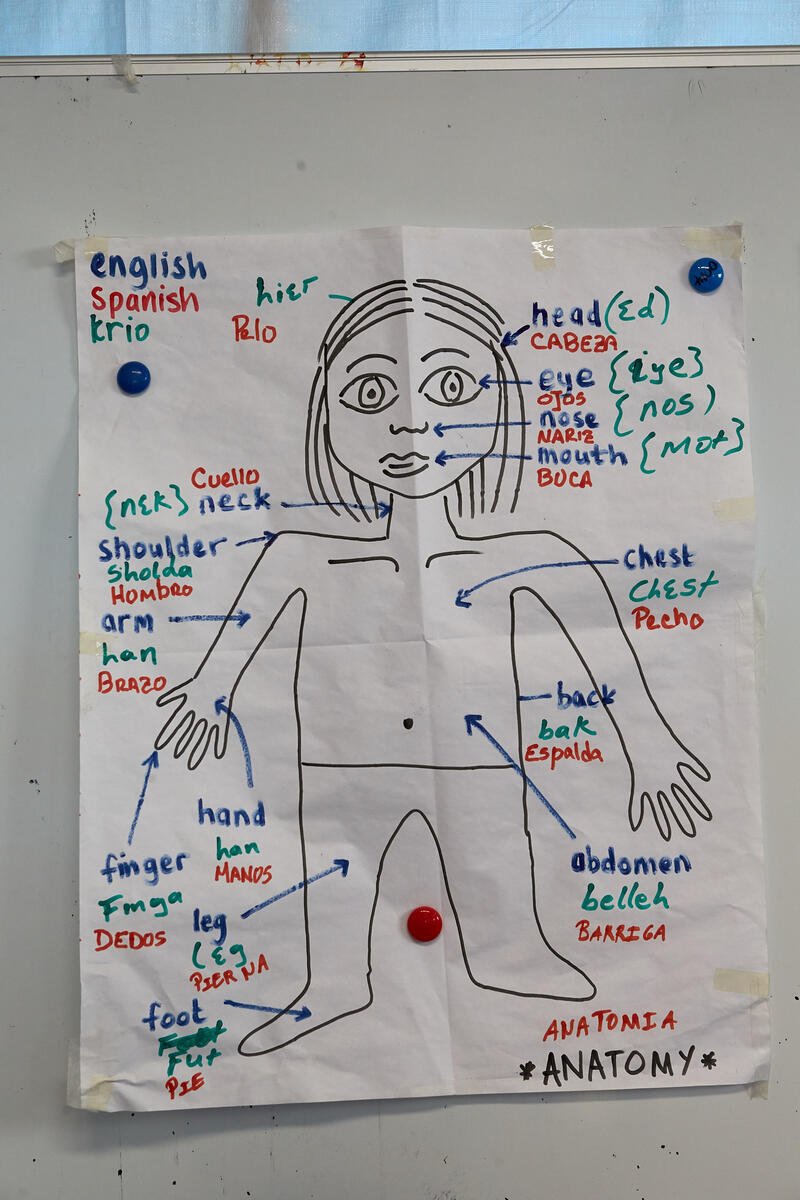 english
Spanish
krio
hiεr
Pelo
head (εd)
CABEZA
eye {iye}
OJOS
nose {nos)
NARIZ
mouth {mot}
BUCA
Cuello
{nεk} neck
shoulder
sholda
HOMBRO
arm
han
BRAZO
chest
Chεst
Pecho
back
bak
Espalda
hand
han
MANOS
finger
Finga
DEDOS
leg
lεg
PIERNA
abdomen
belleh
BARRIGA
foot
Fut
PIE
ANATOMIA
*ANATOMY*